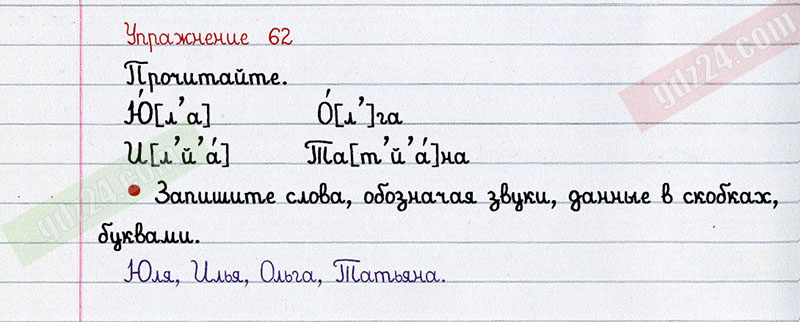 Упражнение 62
Прочитайте.
Ю́[л’а] О́[л’]га
И[л’й’а́] Та[т’й’а́]на
• Запишите слова, обозначая звуки, данные в скобках,
буквами.
Юля, Илья, Ольга, Татьяна.
gdz24.com
gdz24.com